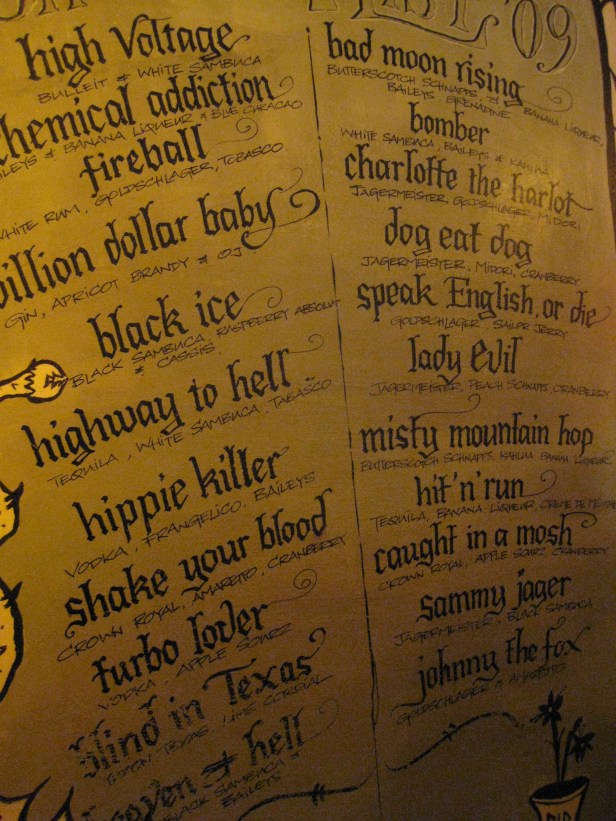 LIST '09
high voltage
BULLEIT & WHITE SAMBUCA
chemical addiction
BAILEYS & BANANA LIQUEUR & BLUE CURACAO
fireball
WHITE RUM, GOLDSCHLAGER, TOBASCO
billion dollar baby
GIN, APRICOT BRANDY & OJ
black ice
BLACK SAMBUCA, RASPBERRY ABSOLUT
& CASSIS
highway to hell
TEQUILA, WHITE SAMBUCA, TABASCO
hippie killer
VODKA, FRANGELICO, BAILEYS
shake your blood
CROWN ROYAL, AMARETTO, CRANBERRY
turbo lover
VODKA, APPLE SOURZ
blind in Texas
TEXAS, LIME CORDIAL
heaven & hell
BLACK SAMBUCA &
BAILEYS
bad moon rising
BUTTERSCOTCH SCHNAPPS, BANANA LIQUEUR,
BAILEYS GRENADINE
bomber
WHITE SAMBUCA, BAILEYS & KAHLUA
charlotte the harlot
JAGERMEISTER, GOLDSCHLAGER, MIDORI
dog eat dog
JAGERMEISTER, MIDORI, CRANBERRY
speak English, or die
GOLDSCHLAGER, SAILOR JERRY
lady Evil
JAGERMEISTER, PEACH SCHNAPPS, CRANBERRY
misty mountain hop
BUTTERSCOTCH SCHNAPPS, KAHLUA, BANANA LIQUEUR
hit 'n' run
TEQUILA, BANANA LIQUEUR, CREME DE
caught in a mosh
CROWN ROYAL, APPLE SOURZ, CRANBERRY
sammy jager
JAGERMEISTER, BLACK SAMBUCA
johnny the fox
GOLDSCHLAGER & AMARETTO
RIP